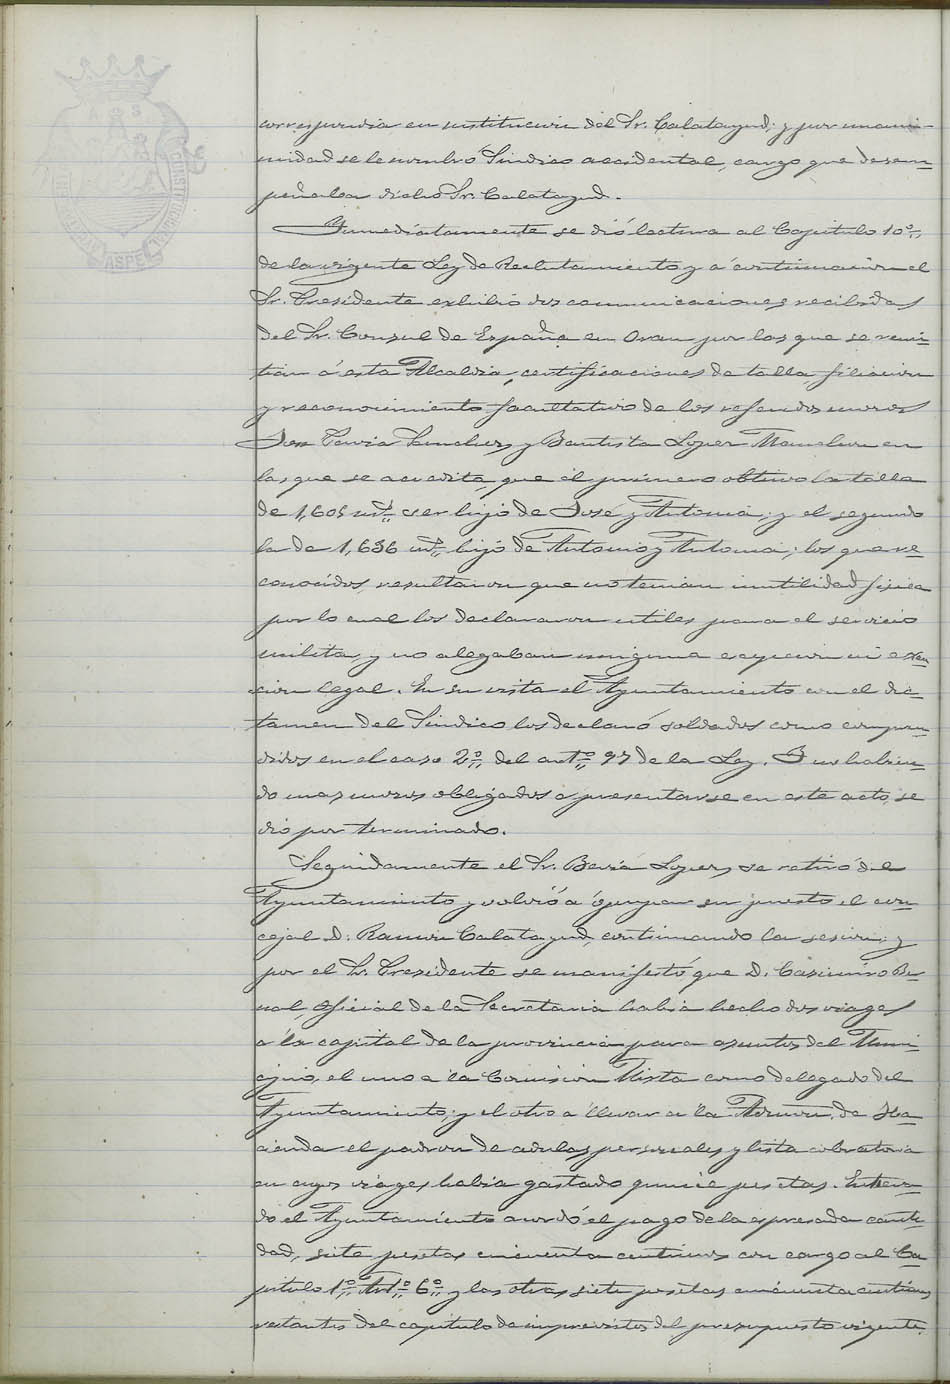 correspondia en sustitucion del Sr. Calatayud; y por unani-
midad se le nombró Sindico accidental, cargo que desem-
peñaba dicho Sr. Calatayud.
Inmediatamente se dió lectura al Capitulo 10º,,
de la vigente Ley de Reclutamiento y á continuacion el
Sr. Presidente exhibió dos comunicaciones recibidas
del Sr. Consul de España en Oran por las que se remi-
tian á esta Alcaldia, certificaciones de talla, filiacion
y reconocimiento facultativo de los referidos mozos
José Sanchez, y Bautista Lopez en
las que se acredita, que el primero obtuvo la talla
de 1,605 mts. ser hijo de José y Antonia; y el segundo
la de 1,636 mts. hijo de Antonio y Antonia; los que re-
conocidos, resultaron que no tenian inutilidad fisica
por lo cual los declararon utiles para el servicio
militar, y no alegaban ninguna escepcion ni exen-
cion legal. En su vista el Ayuntamiento con el dic-
tamen del Sindico los declaró soldados como compren-
didos en el caso 2º,, del artº,, 97 de la Ley. Y no habien-
do mas mozos obligados a presentarse en este acto, se
dio por terminado.
Seguidamente el Sr. Lopez, se retiró del
Ayuntamiento y volvió á ocupar su puesto el con-
cejal D. Ramon Calatayud, continuando la sesion; y
por el Sr. Presidente se manifestó que D. Casimiro Ber-
nal, Oficial de la Secretaria habia hecho dos viages
a la capital de la provincia para asuntos del Muni-
cipio, el uno a la Comision Mista como delegado del
Ayuntamiento; y el otro a llevar a la Admon. de Ha-
cienda el padron de cedulas personales y lista cobratoria
en cuyos viages habia gastado quince pesetas. Entera-
do el Ayuntamiento acordó el pago de la espresada canti-
dad, siete pesetas cincuenta centimos con cargo al Ca-
pitulo 1º,, Artº,, 6º,, y las otras siete pesetas cincuenta centimos
restantes del capitulo de imprevistos del presupuesto vigente.
AYUNTAMIENTO CONSTITUCIONAL
ASPE